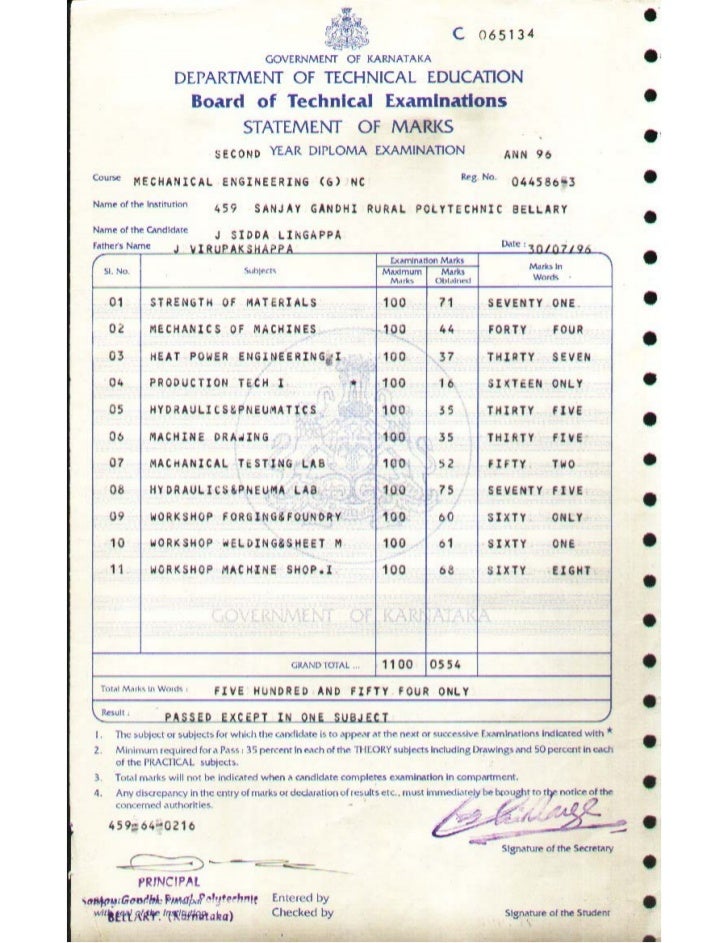 C 065134
GOVERNMENT OF KARNATAKA
DEPARTMENT OF TECHNICAL EDUCATION
Board of Technical Examinations
STATEMENT OF MARKS
SECOND YEAR DIPLOMA EXAMINATION ANN 96
Course MECHANICAL ENGINEERING (G) NC Reg. No. 04458643
Name of the Institution 459 SANJAY GANDHI RURAL POLYTECHNIC BELLARY
Name of the Candidate J SIDDA LINGAPPA
Father's Name J VIRUPAKSHAPPA Date : 30/07/96
Sl. No. Subjects Examination Marks Marks In Words
Maximum Marks Marks Obtained
01 STRENGTH OF MATERIALS 100 71 SEVENTY ONE
02 MECHANICS OF MACHINES 100 44 FORTY FOUR
03 HEAT POWER ENGINEERING.I 100 37 THIRTY SEVEN
04 PRODUCTION TECH I * 100 16 SIXTEEN ONLY
05 HYDRAULICS&PNEUMATICS 100 35 THIRTY FIVE
06 MACHINE DRAWING 100 35 THIRTY FIVE
07 MACHANICAL TESTING LAB 100 52 FIFTY TWO
08 HYDRAULICS&PNEUMA LAB 100 75 SEVENTY FIVE
09 WORKSHOP FORGING&FOUNDRY 100 60 SIXTY ONLY
10 WORKSHOP WELDING&SHEET M 100 61 SIXTY ONE
11 WORKSHOP MACHINE SHOP.I 100 68 SIXTY EIGHT
GOVERNMENT OF KARNATAKA
GRAND TOTAL ... 1100 0554
Total Marks in Words : FIVE HUNDRED AND FIFTY FOUR ONLY
Result : PASSED EXCEPT IN ONE SUBJECT
1. The subject or subjects for which the candidate is to appear at the next or successive Examinations indicated with *
2. Minimum required for a Pass : 35 percent in each of the THEORY subjects including Drawings and 50 percent in each
of the PRACTICAL subjects.
3. Total marks will not be indicated when a candidate completes examination in compartment.
4. Any discrepancy in the entry of marks or declaration of results etc., must immediately be brought to the notice of the
concerned authorities.
459-64-0216
Signature of the Secretary
PRINCIPAL
Sanjay Gandhi Rural Polytechnic Entered by
BELLARY. (Karnataka) Checked by Signature of the Student